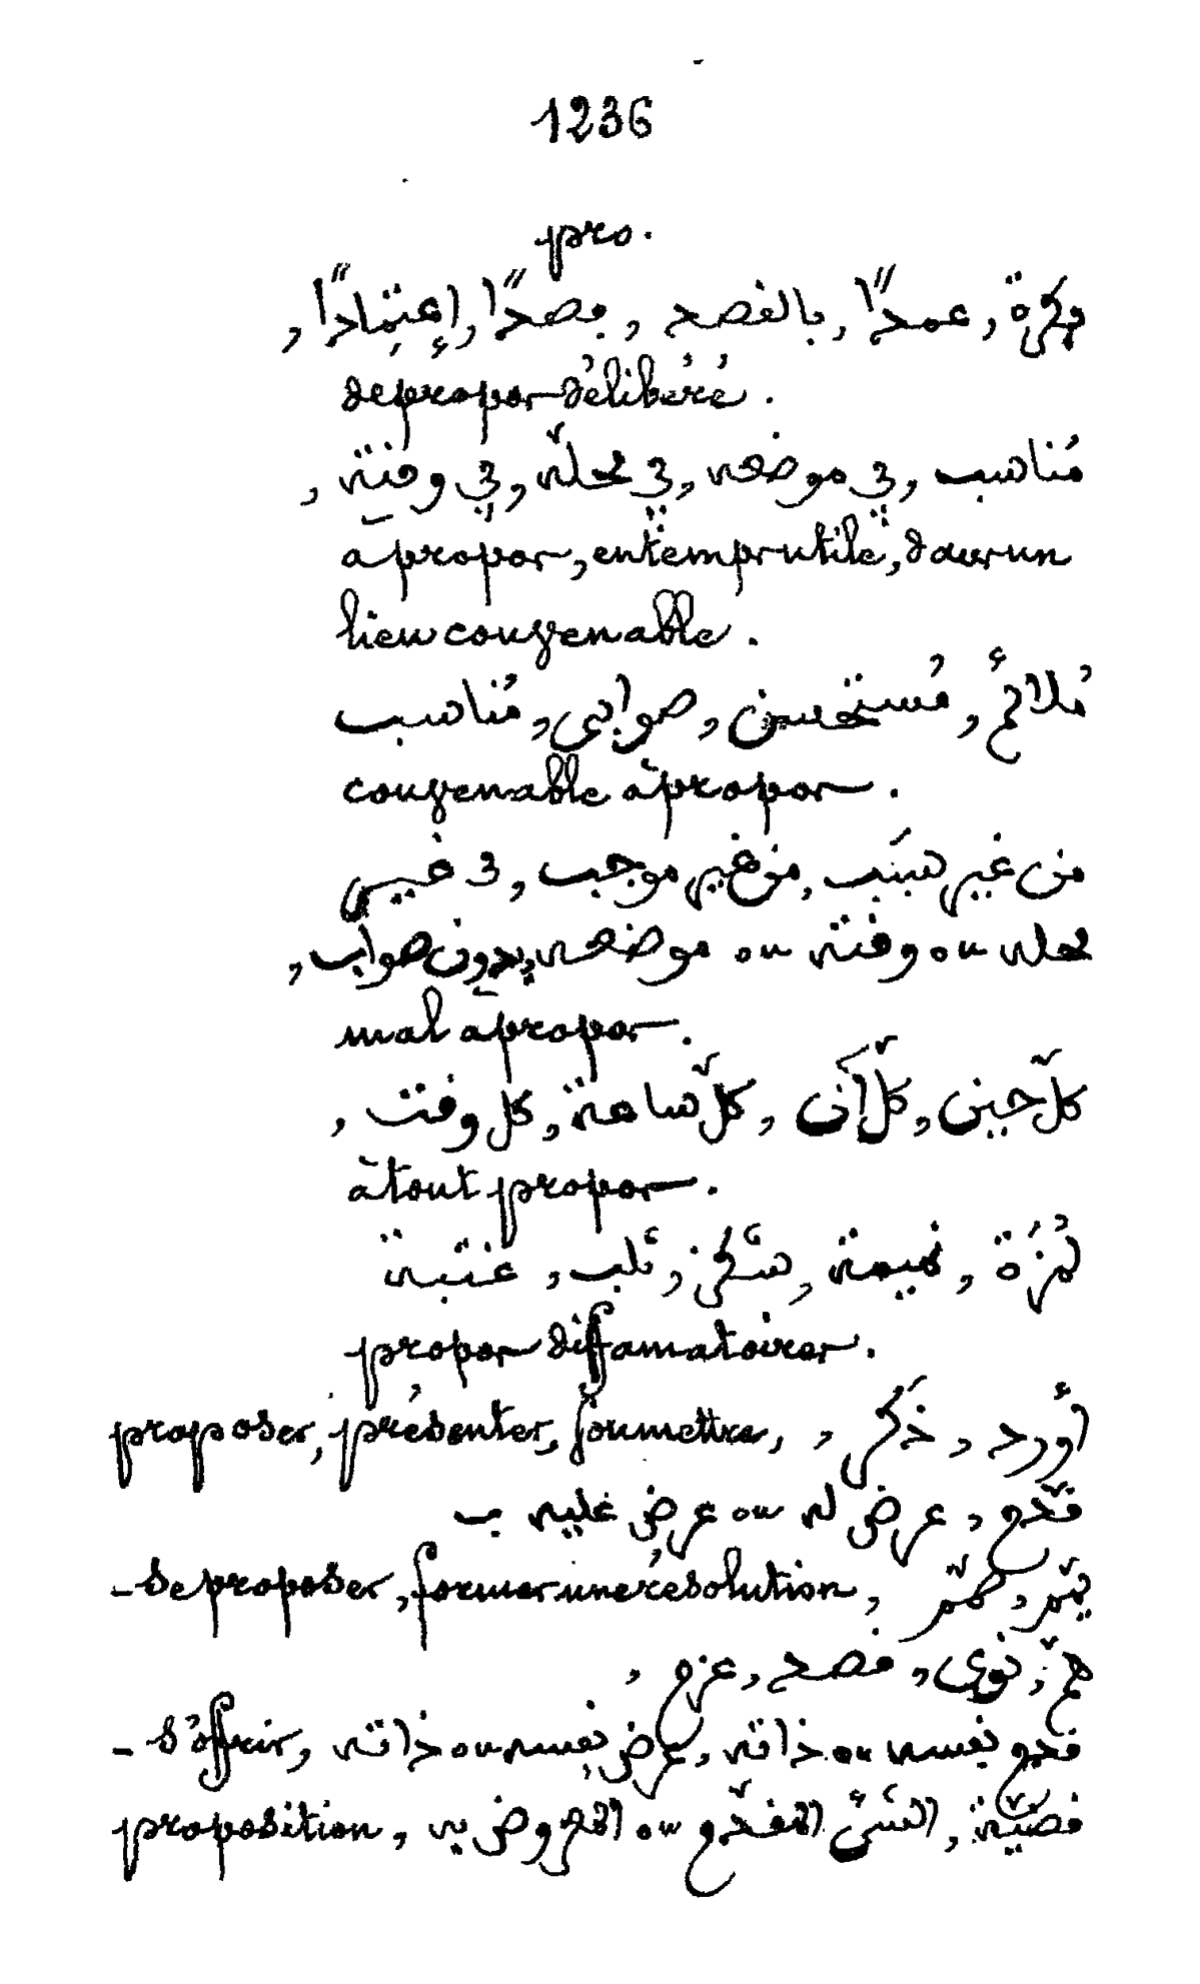 1236
pro.
فكرة, عمدًا, بالقصد, قصدًا, إعتِمادًا,
de propos délibéré.
مُناسب, في موضعه, في محلّه, في وقته,
à propos, en temps utile, dans un
lieu convenable.
مُلائمٌ, مُستحسن, صوابى, مُناسب
convenable à propos.
من غير سَبَب, من غير موجب, في غيير
محله ou وقته ou موضعه, بدون صواب,
mal à propos.
كلّ حين, كلّ آن, كلّ ساعة, كل وقت,
à tout propos.
لُمَزَة, نميمة, ثلب, غتيبة
propos diffamatoires.
proposer, présenter, soumettre, , أورد, ذَكر,
قدّم, عرض له ou عرض عليه ب
- se proposer, former une résolution,
همّ, نوى, قصد, عزم,
- s'offrir, قدم نفسه ou ذاته, عرض نفسه ou ذاته
proposition, قضيّة, الشَىْ المقدّم ou المعروض به